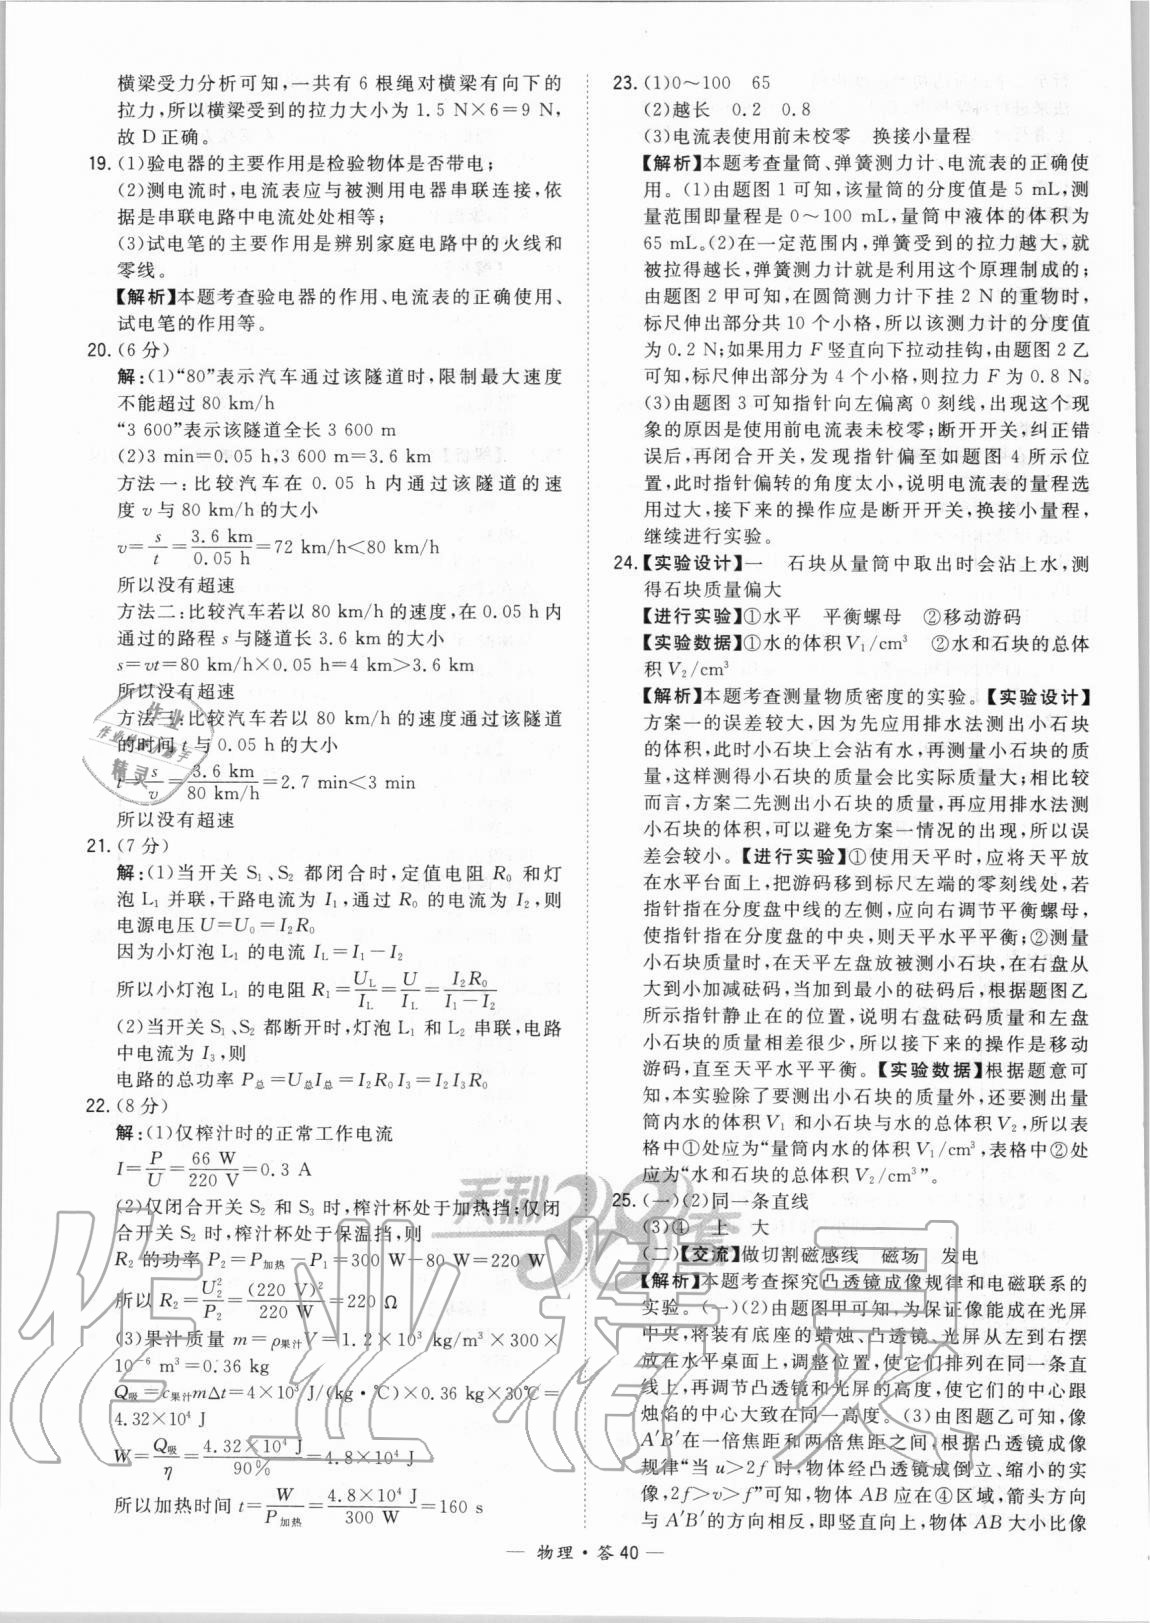 横梁受力分析可知,一共有 6 根绳对横梁有向下的
拉力,所以横梁受到的拉力大小为 1.5 N×6=9 N,
故 D 正确。
19.(1)验电器的主要作用是检验物体是否带电;
(2)测电流时,电流表应与被测用电器串联连接,依
据是串联电路中电流处处相等;
(3)试电笔的主要作用是辨别家庭电路中的火线和
零线。
【解析】本题考查验电器的作用、电流表的正确使用、
试电笔的作用等。
20.(6 分)
解:(1)“80”表示汽车通过该隧道时,限制最大速度
不能超过 80 km/h
“3 600”表示该隧道全长 3 600 m
(2)3 min=0.05 h,3 600 m=3.6 km
方法一:比较汽车在 0.05 h 内通过该隧道的速
度 v 与 80 km/h 的大小
v=s/t=3.6 km/0.05 h=72 km/h<80 km/h
所以没有超速
方法二:比较汽车若以 80 km/h 的速度,在 0.05 h 内
通过的路程 s 与隧道长 3.6 km 的大小
s=vt=80 km/h×0.05 h=4 km>3.6 km
所以没有超速
方法三:比较汽车若以 80 km/h 的速度通过该隧道
的时间 t 与 0.05 h 的大小
t=s/v=3.6 km/80 km/h=2.7 min<3 min
所以没有超速
21.(7 分)
解:(1)当开关 S₁、S₂ 都闭合时,定值电阻 R₀ 和灯
泡 L₁ 并联,干路电流为 I₁,通过 R₀ 的电流为 I₂,则
电源电压 U=U₀=I₂R₀
因为小灯泡 L₁ 的电流 I_L=I₁-I₂
所以小灯泡 L₁ 的电阻 R₁=U_L/I_L=U/I_L=I₂R₀/(I₁-I₂)
(2)当开关 S₁、S₂ 都断开时,灯泡 L₁ 和 L₂ 串联,电路
中电流为 I₃,则
电路的总功率 P总=U总I总=I₂R₀I₃=I₂I₃R₀
22.(8 分)
解:(1)仅榨汁时的正常工作电流
I=P/U=66 W/220 V=0.3 A
(2)仅闭合开关 S₂ 和 S₃ 时,榨汁杯处于加热挡;仅闭
合开关 S₂ 时,榨汁杯处于保温挡,则
R₂ 的功率 P₂=P加热-P₁=300 W-80 W=220 W
所以 R₂=U₂²/P₂=(220 V)²/220 W=220 Ω
(3)果汁质量 m=ρ果汁V=1.2×10³ kg/m³×300×
10⁻⁶ m³=0.36 kg
Q吸=c果汁mΔt=4×10³ J/(kg·℃)×0.36 kg×30℃=
4.32×10⁴ J
W=Q吸/η=4.32×10⁴ J/90%=4.8×10⁴ J
所以加热时间 t=W/P加热=4.8×10⁴ J/300 W=160 s
23.(1)0～100 65
(2)越长 0.2 0.8
(3)电流表使用前未校零 换接小量程
【解析】本题考查量筒、弹簧测力计、电流表的正确使
用。(1)由题图 1 可知,该量筒的分度值是 5 mL,测
量范围即量程是 0～100 mL,量筒中液体的体积为
65 mL。(2)在一定范围内,弹簧受到的拉力越大,就
被拉得越长,弹簧测力计就是利用这个原理制成的;
由题图 2 甲可知,在圆筒测力计下挂 2 N 的重物时,
标尺伸出部分共 10 个小格,所以该测力计的分度值
为 0.2 N;如果用力 F 竖直向下拉动挂钩,由题图 2 乙
可知,标尺伸出部分为 4 个小格,则拉力 F 为 0.8 N。
(3)由题图 3 可知指针向左偏离 0 刻线,出现这个现
象的原因是使用前电流表未校零;断开开关,纠正错
误后,再闭合开关,发现指针偏至如题图 4 所示位
置,此时指针偏转的角度太小,说明电流表的量程选
用过大,接下来的操作应是断开开关,换接小量程,
继续进行实验。
24.【实验设计】一 石块从量筒中取出时会沾上水,测
得石块质量偏大
【进行实验】①水平 平衡螺母 ②移动游码
【实验数据】①水的体积 V₁/cm³ ②水和石块的总体
积 V₂/cm³
【解析】本题考查测量物质密度的实验。【实验设计】
方案一的误差较大,因为先应用排水法测出小石块
的体积,此时小石块上会沾有水,再测量小石块的质
量,这样测得小石块的质量会比实际质量大;相比较
而言,方案二先测出小石块的质量,再应用排水法测
小石块的体积,可以避免方案一情况的出现,所以误
差会较小。【进行实验】①使用天平时,应将天平放
在水平台面上,把游码移到标尺左端的零刻线处,若
指针指在分度盘中线的左侧,应向右调节平衡螺母,
使指针指在分度盘的中央,则天平水平平衡;②测量
小石块质量时,在天平左盘放被测小石块,在右盘从
大到小加减砝码,当加到最小的砝码后,根据题图乙
所示指针静止在的位置,说明右盘砝码质量和左盘
小石块的质量相差很少,所以接下来的操作是移动
游码,直至天平水平平衡。【实验数据】根据题意可
知,本实验除了要测出小石块的质量外,还要测出量
筒内水的体积 V₁ 和小石块与水的总体积 V₂,所以表
格中①处应为“量筒内水的体积 V₁/cm³,表格中②处
应为“水和石块的总体积 V₂/cm³”。
25.(一)(2)同一条直线
(3)④ 上 大
(二)【交流】做切割磁感线 磁场 发电
【解析】本题考查探究凸透镜成像规律和电磁联系的
实验。(一)(2)由题图甲可知,为保证像能成在光屏
中央,将装有底座的蜡烛、凸透镜、光屏从左到右摆
放在水平桌面上,调整位置,使它们排列在同一条直
线上,再调节凸透镜和光屏的高度,使它们的中心跟
烛焰的中心大致在同一高度。(3)由图题乙可知,像
A′B′在一倍焦距和两倍焦距之间,根据凸透镜成像
规律“当 u>2f 时,物体经凸透镜成倒立、缩小的实
像,2f>v>f”可知,物体 AB 应在④区域,箭头方向
与 A′B′的方向相反,即竖直向上,物体 AB 大小比像
— 物理·答 40 —
天利38套
作业精灵